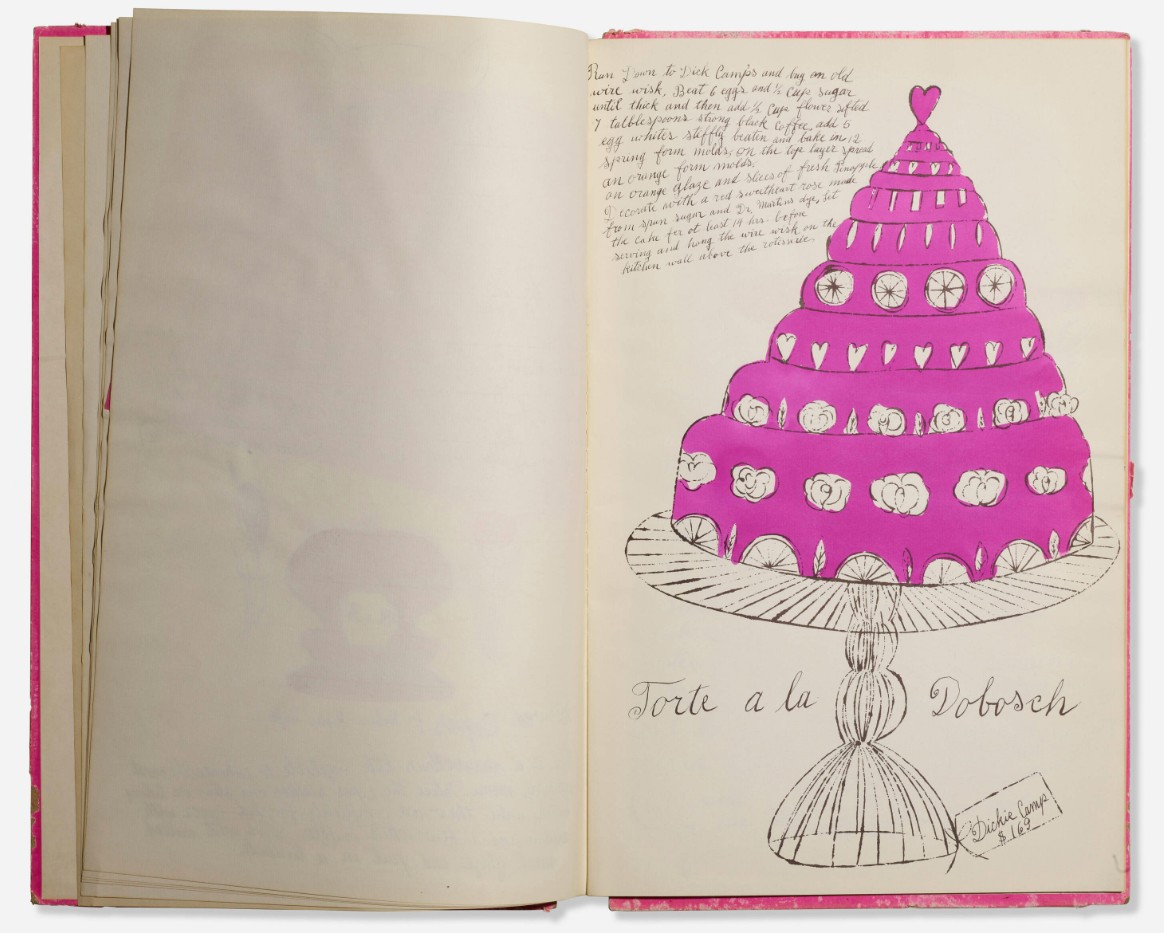 Run Down to Dick Camps and buy an old
wire wisk. Beat 6 eggs and ½ Cup sugar
until thick and then add ½ Cup flower sifted
7 talblespoons strong black coffee, add 5
egg whites stiffly beaten and bake in 12
spring form molds. on the top layer spread
an orange form molds.
on orange glaze and slices of fresh Pineapple
Decorate with a red sweetheart rose made
from spun sugar and Dr. Martins dye, Let
the cake for at least 19 hrs. before
serving and hang the wire wisk on the
kitchen wall above the rotisserie.
Torte a la Dobosch
Dickie Camp
$ 1.69